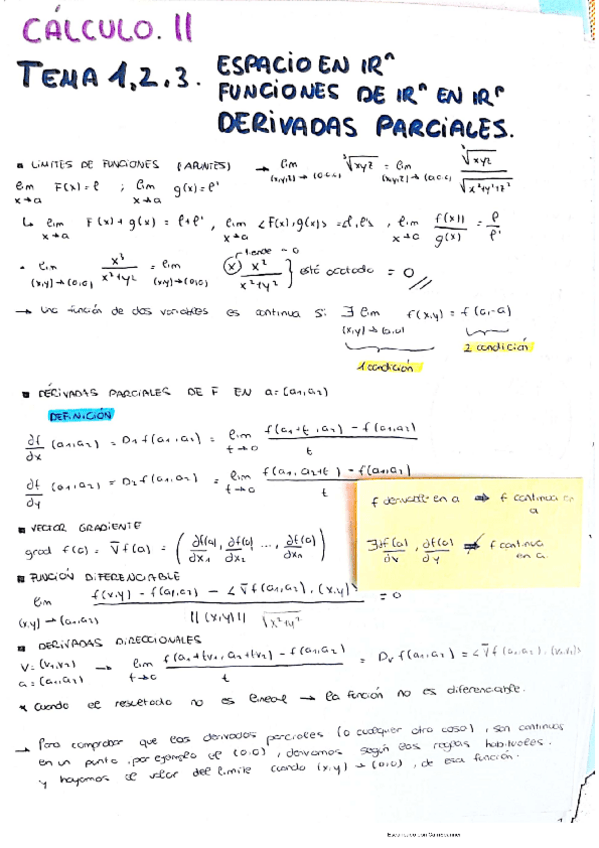 CÁLCULO. II
TEMA 1,2,3. ESPACIO EN IRⁿ
FUNCIONES DE IRⁿ EN IRⁿ
DERIVADAS PARCIALES.
▪ LIMITES DE FUNCIONES (APUNTES) → lim (x,y,z)→(0,0,0) ∛xyz = lim (x,y,z)→(0,0,0) ∛xyz / √x²+y²+z²
lim x→a F(x)=ℓ ; lim x→a g(x)=ℓ'
↳ lim x→a F(x)+g(x) = ℓ+ℓ' , lim x→a <F(x),g(x)> = , lim f(x) / g(x) = ℓ / ℓ'
• lim (x,y)→(0,0) x³ / x²+y² = lim (x,y)→(0,0) (x) x² / x²+y² } está acotado = 0
tiende → 0
→ Una función de dos variables es continua si ∃ lim f(x,y) = f(a,a)
1 condición
2 condición
▪ DERIVADAS PARCIALES DE F EN a=(a₁,a₂)
DEFINICIÓN
∂f/∂x (a₁,a₂) = D₁f(a₁,a₂) = lim t→0 f(a₁+t, a₂) − f(a₁,a₂) / t
∂f/∂y (a₁,a₂) = D₂f(a₁,a₂) = lim t→0 f(a₁, a₂+t) − f(a₁,a₂) / t
f derivable en a ⇒ f continua en a
▪ VECTOR GRADIENTE
grad f(a) = ∇f(a) = (∂f(a)/∂x₁, ∂f(a)/∂x₂, ..., ∂f(a)/∂xₙ)
∃ ∂f(a)/∂x , ∂f(a)/∂y ⇏ f continua en a.
▪ FUNCIÓN DIFERENCIABLE
lim (x,y)→(a₁,a₂) f(x,y) − f(a₁,a₂) − <∇f(a₁,a₂),(x,y)> / ||(x,y)|| √x²+y² = 0
▪ DERIVADAS DIRECCIONALES
V=(v₁,v₂) → lim t→0 f(a₁+tv₁, a₂+tv₂) − f(a₁,a₂) / t = Dᵥf(a₁,a₂) = <∇f(a₁,a₂),(v₁,v₂)>
a=(a₁,a₂)
* Cuando el resultado no es lineal → la función no es diferenciable.
→ Para comprobar que las derivadas parciales (o cualquier otro caso), son continuas
en un punto, por ejemplo el (0,0), derivamos según las reglas habituales.
y hayamos el valor del limite cuando (x,y) → (0,0), de esa función.